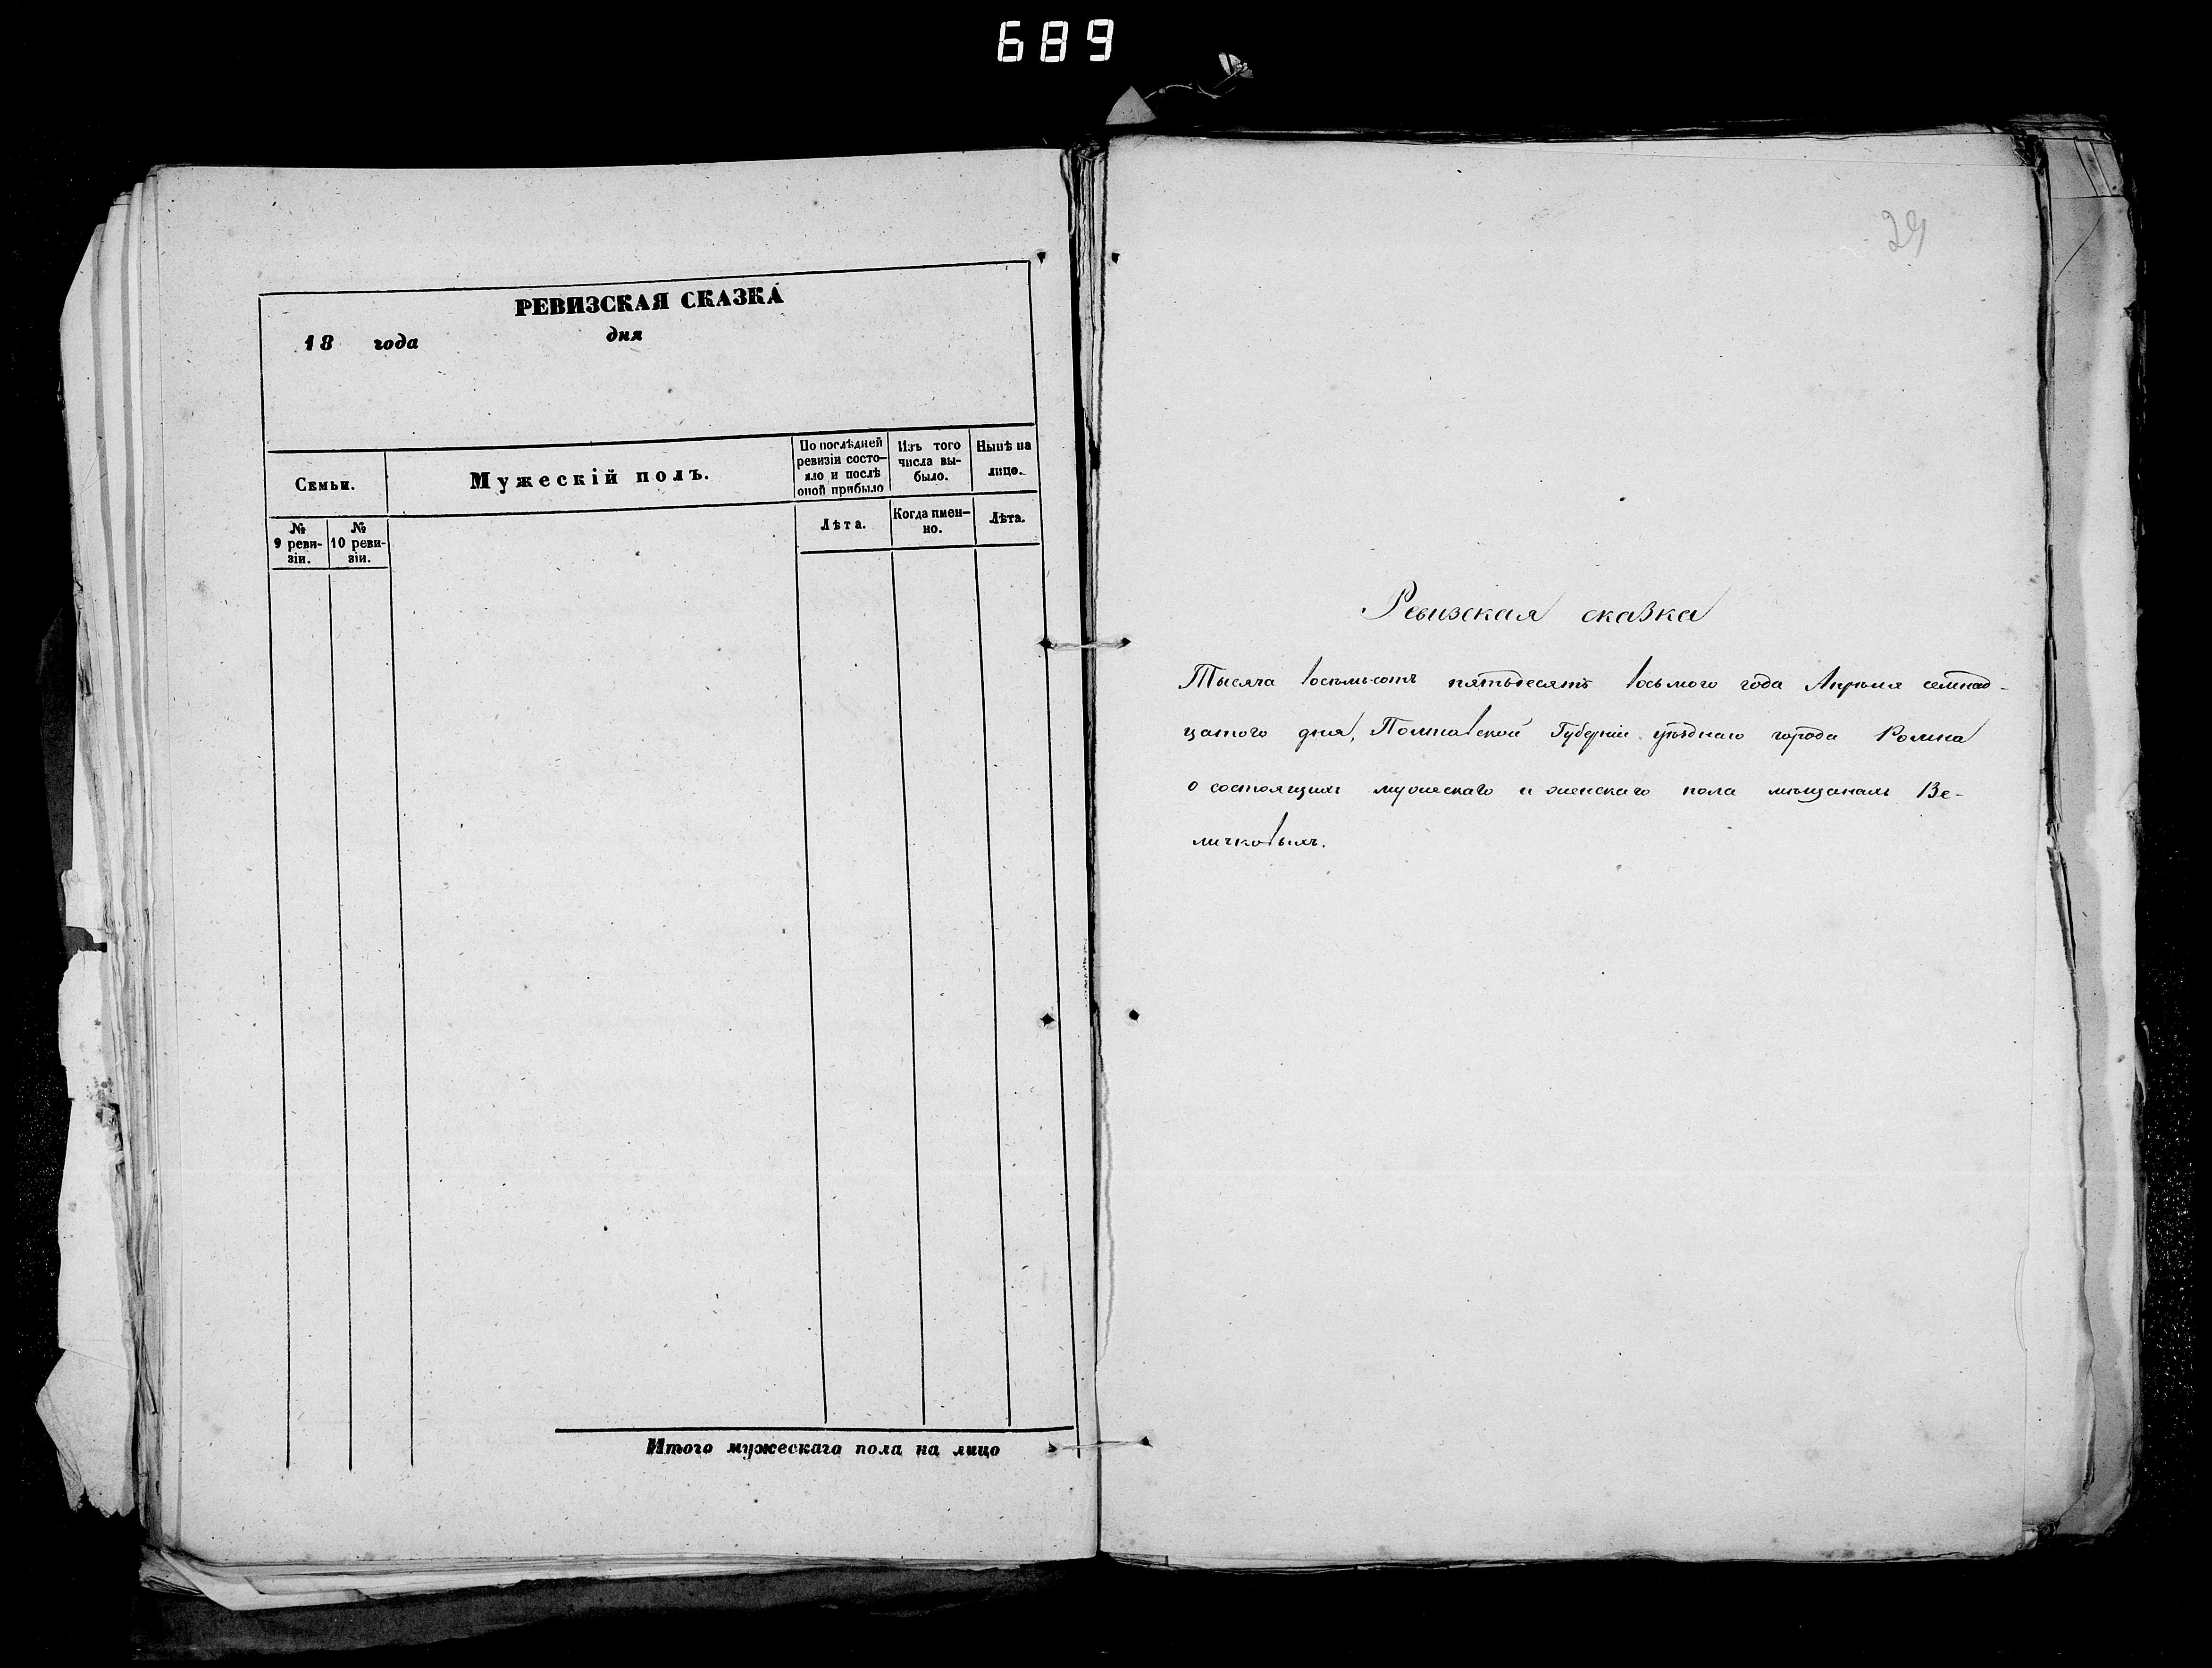 689
РЕВИЗСКАЯ СКАЗКА
18 года дня
Семьи.
Мужескій полъ.
По послѣдней
ревизіи состо-
яло и послѣ
оной прибыло
Изъ того
числа вы-
было.
Нынѣ на
лицо.
№
9 реви-
зіи.
№
10 реви-
зіи.
Лѣта.
Когда имен-
но.
Лѣта.
Итого мужескаго пола на лицо
29
Ревизская сказка
Тысяча восемьсотъ пятьдесятъ восьмого года Апрѣля семнад-
цатого дня, Полтавской Губерніи уѣзднаго города Ромна
о состоящихъ мужескаго и женскаго пола мѣщанахъ Ве-
личковыхъ.